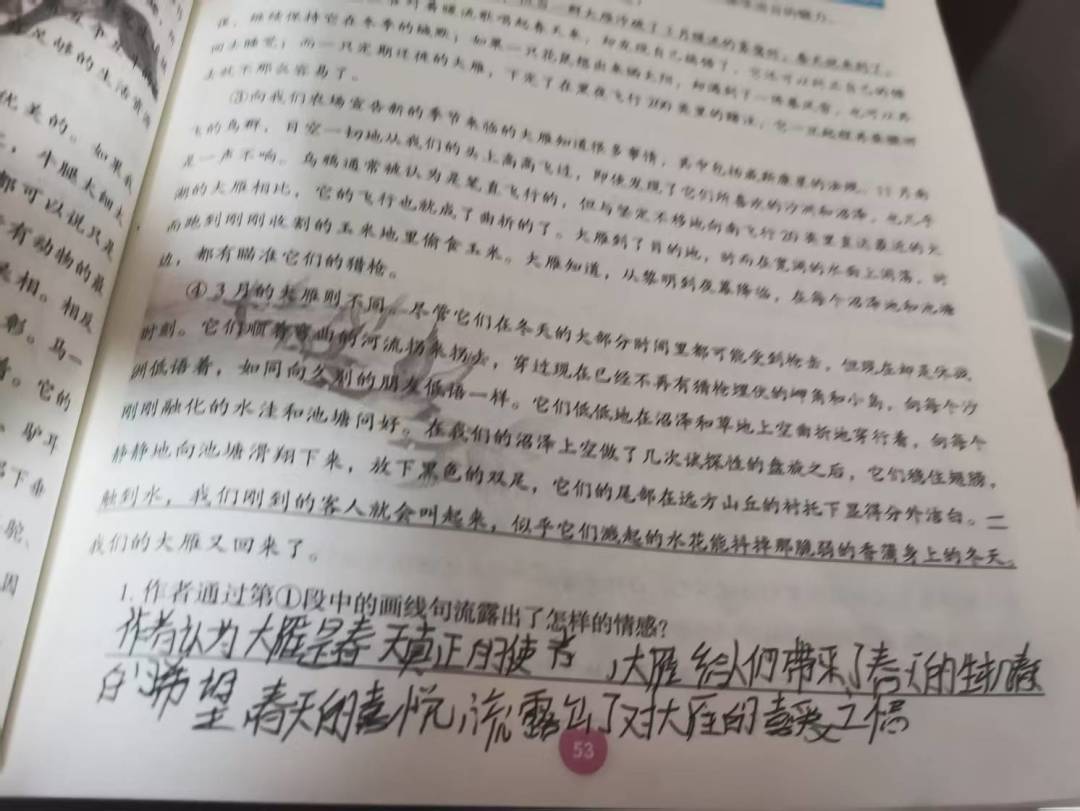 优美的。如果我
牛腿太细太
都可以说只是
有动物的最
相。相反
彰。马一
着。它的
、驴耳
部下垂
驼、
因
来,继续保持它在冬季的缄默;如果一只花鼠想出来晒太阳,却遇到了一阵暴风雪,也可以再
回去睡觉;而一只定期迁徙的大雁,下定了在黑夜飞行200英里的赌注,它一旦起程再要撤回
去就不那么容易了。
③向我们农场宣告新的季节来临的大雁知道很多事情,其中包括威斯康星的法规。11月南
飞的鸟群,目空一切地从我们的头上高高飞过,即使发现了它们所喜欢的沙滩和沼泽,也几乎
是一声不响。乌鸦通常被认为是笔直飞行的,但与坚定不移地向南飞行20英里直达最近的大
湖的大雁相比,它的飞行也就成了曲折的了。大雁到了目的地,时而在宽阔的水面上闲荡,时
而跑到刚刚收割的玉米地里偷食玉米。大雁知道,从黎明到夜幕降临,在每个沼泽地和池塘
边,都有瞄准它们的猎枪。
④3月的大雁则不同。尽管它们在冬天的大部分时间里都可能受到枪击,但现在却是休战
时刻。它们顺着弯曲的河流拐来拐去,穿过现在已经不再有猎枪埋伏的岬角和小岛,向每个沙
洲低语着,如同向久别的朋友低语一样。它们低低地在沼泽和草地上空曲折地穿行着,向每个
刚刚融化的水洼和池塘问好。在我们的沼泽上空做了几次试探性的盘旋之后,它们稳住翅膀,
静静地向池塘滑翔下来,放下黑色的双足,它们的尾部在远方山丘的衬托下显得分外洁白。一
触到水,我们刚到的客人就会叫起来,似乎它们溅起的水花能抖掉那脆弱的香蒲身上的冬天。
我们的大雁又回来了。
1.作者通过第①段中的画线句流露出了怎样的情感?
作者认为大雁是春天真正的使者,大雁给人们带来了春天的生机,春
的希望 春天的喜悦,流露出了对大雁的喜爱之情
53